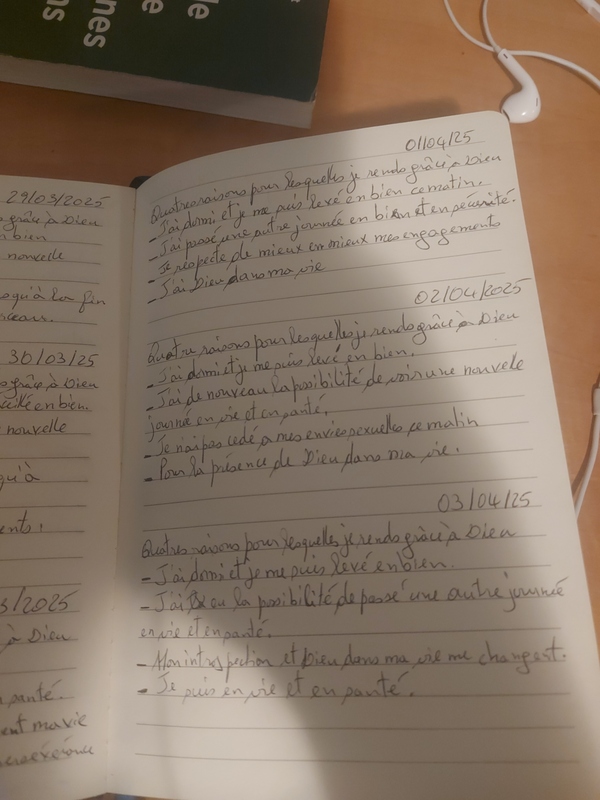 le
nes
ns
e
29/03/2025
grâce à Dieu
n bien
nouvelle
squ'à la fin
30/03/25
grâce à Dieu
veillé en bien.
nouvelle
qu'à
ents.
3/2025
à Dieu
santé.
ent ma vie
01/04/25
Quatres raisons pour lesquelles je rends grâce à Dieu
- J'ai dormi et je me suis levé en bien ce matin.
- J'ai passé une autre journée en bien et en sécurité.
- Je respecte de mieux en mieux mes engagements
- J'ai Dieu dans ma vie
02/04/2025
Quatre raisons pour lesquelles je rends grâce à Dieu
- J'ai dormi et je me suis levé en bien.
- J'ai de nouveau la possibilité de voir une nouvelle
journée en vie et en santé.
- Je n'ai pas cédé à mes envies sexuelles ce matin
- Pour la présence de Dieu dans ma vie.
03/04/25
Quatres raisons pour lesquelles je rends grâce à Dieu
- J'ai dormi et je me suis levé en bien.
- J'ai eu la possibilité de passé une autre journée
en vie et en santé.
- Mon introspection et Dieu dans ma vie me changent.
- Je suis en vie et en santé.